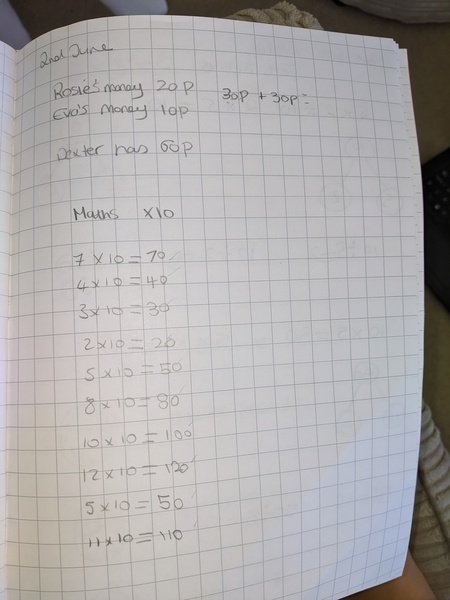 2nd June
Rosie's money 20p 30p + 30p =
Eva's Money 10p
Dexter has 60p
Maths x10
7 x 10 = 70
4 x 10 = 40
3 x 10 = 30
2 x 10 = 20
5 x 10 = 50
8 x 10 = 80
10 x 10 = 100
12 x 10 = 120
5 x 10 = 50
11 x 10 = 110